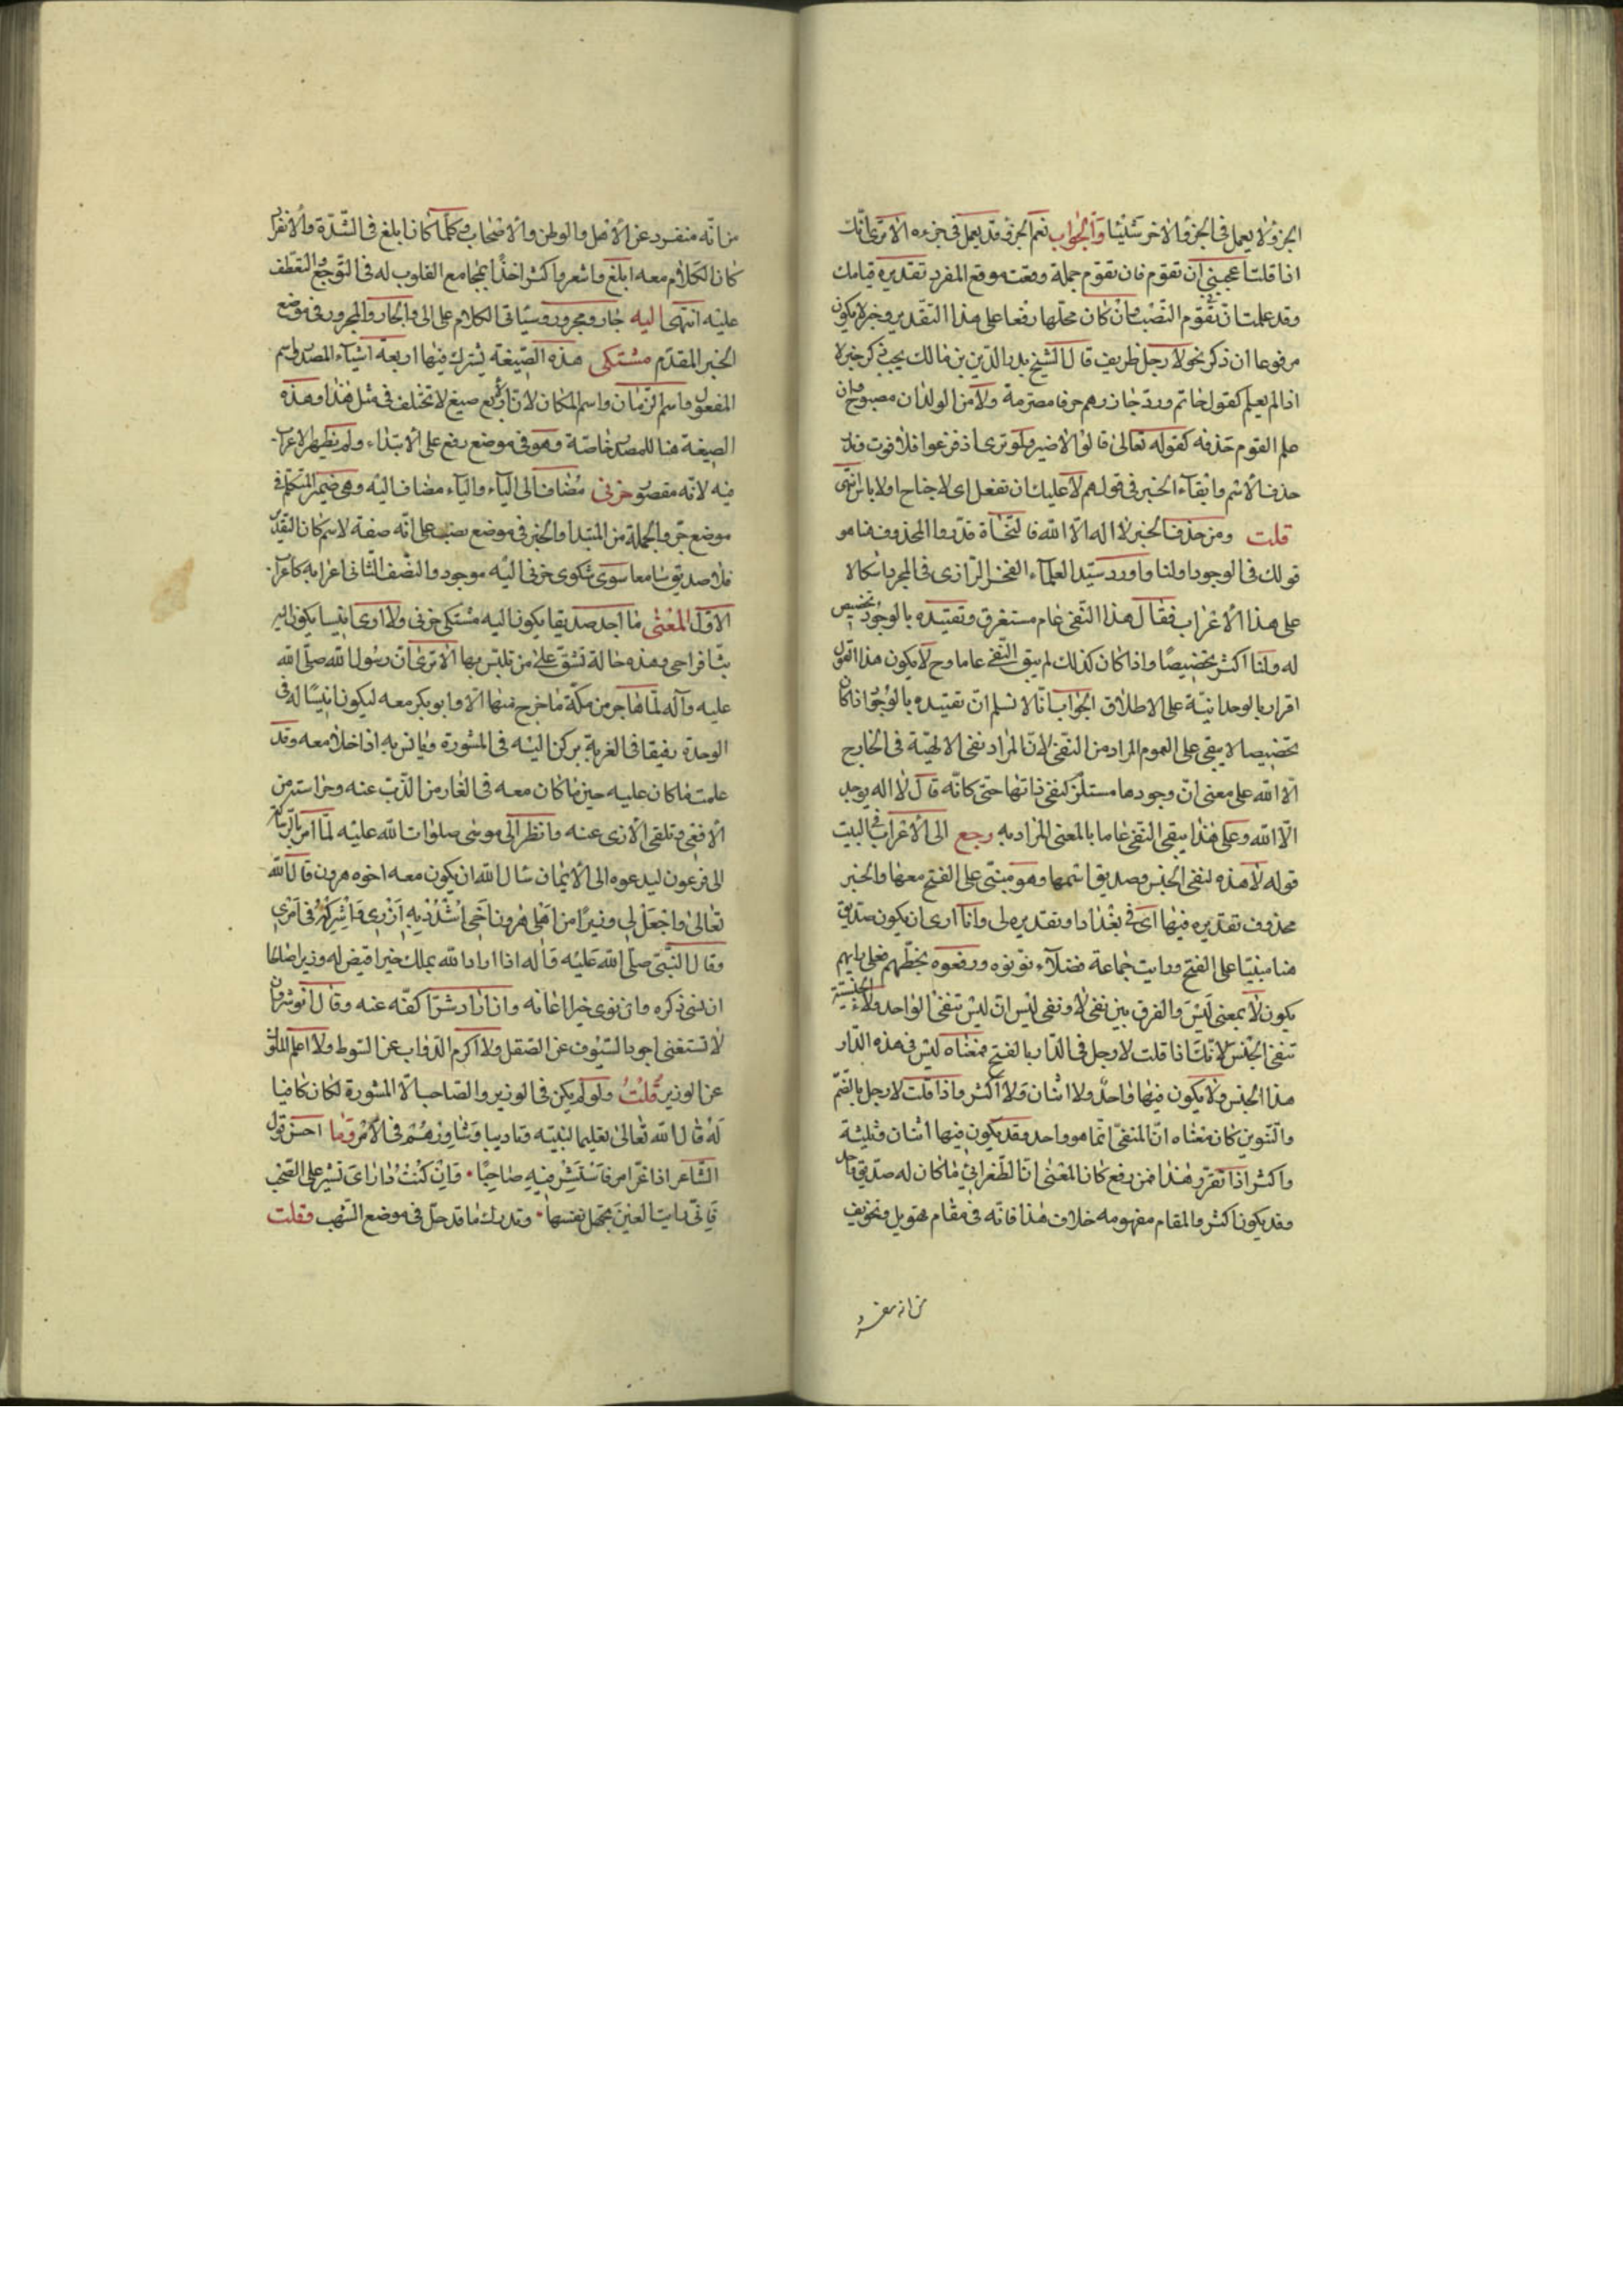 الجزؤ لا يعمل فى الجزؤ الاخر شيئا والجواب نعم الجزؤ قد يعمل فى جزءه الا ترى انك
اذا قلت اعجبنى ان تقوم فان تقوم جملة وقعت موقع المفرد تقديره قيامك
وقد علمت ان تقوم النصب وان كان محلها رفعا على هذا التقدير وخبر لا يكون
مرفوعا ان ذكر نحو لا رجل ظريف قال الشيخ بدر الدين بن مالك يجب ذكر خبر لا
اذا لم يعلم كقول حاتم ورد جازرهم حرفا مصرمة ولا من الولدان مصبوح وان
علم التزم حذفه كقوله تعالى قالوا لا ضير ولو ترى اذ فزعوا فلا فوت وندر
حذف الاسم وابقاء الخبر فى قولهم لا عليك ان تفعل اى لا جناح او لا باس انتهى
قلت ومن حذف الخبر لا اله الا الله فالنحاة قدروا المحذوف هنا هو
قولك فى الوجود او لنا واورد سيد العلماء الفخر الرازى فى المحرر اشكالا
على هذا الاعراب فقال هذا النفى عام مستغرق وتقييده بالوجود تخصيص
له ولنا اكثر تخصيصا واذا كان كذلك لم يبق النفى عاما وح لا يكون هذا القول
اقرارا بالوحدانية على الاطلاق الجواب انا لا نسلم ان تقييده بالوجود اذا كان
تخصيصا لا يبقى على العموم المراد من النفى لان المراد نفى الالهية فى الخارج
الا الله على معنى ان وجودها مستلزم لنفى ذاتها حتى كانه قال لا اله يوجد
الا الله وعلى هذا يبقى النفى عاما بالمعنى المراد به رجع الى الاعراب فى البيت
قوله لا هذه لنفى الجنس وصديق اسمها وهو مبنى على الفتح معها والخبر
محذوف تقديره فيها اى فى بغداد او تقديره لى وانا ارى ان يكون صديق
هنا مبنيا على الفتح ورايت جماعة فضلاء نونوه ورفعوه بخطهم فعلى رايهم
يكون لا بمعنى ليس والفرق بين نفى لا ونفى ليس ان ليس تنفى الواحد ولا الجنسية
تنفى الجنس لانك اذا قلت لا رجل فى الدار بالفتح فمعناه ليس فى هذه الدار
هذا الجنس ولا يكون فيها واحد ولا اثنان ولا اكثر واذا قلت لا رجل بالضم
والتنوين كان معناه ان المنفى انما هو واحد وقد يكون فيها اثنان وثلثة
واكثر اذا تقرر هذا فمن رفع كان المعنى ان الطغرائى ما كان له صديق واحد
وقد يكون اكثر والمقام مفهومه خلاف هذا فانه فى مقام تهويل وتخويف
من انه منفرد
من انه منفرد عن الاهل والوطن والاصحاب وكلما كان ابلغ فى الشدة والانفراد
كان الكلام معه ابلغ واشعر واكثر اخذا بمجامع القلوب له فى التوجع والتعطف
عليه انتهى اليه جار ومجرور وسياتى الكلام على الى والجار والمجرور فى موضع
الخبر المقدم مشتكى هذه الصيغة يشترك فيها اربعة اشياء المصدر واسم
المفعول واسم الزمان واسم المكان لان الاربع صيغ لا تختلف فى مثل هذا وهذه
الصيغة هنا للمصدر خاصة وهو فى موضع رفع على الابتداء ولم يظهر الاعراب
فيه لانه مقصور حزنى مضاف الى الياء والياء مضاف اليه وهى ضمير المتكلم فى
موضع جر والجملة من المبتدا والخبر فى موضع نصب على انه صفة لاسم كان التقدير
فلا صديق سامعا سوى شكوى حزنى اليه موجود والنصف الثانى اعرابه كاعراب
الاول المعنى ما اجد صديقا يكون اليه مشتكى حزنى ولا ارى انيسا يكون اليه
بث افراحى وهذه حالة تشق على من تلبس بها الا ترى ان رسول الله صلى الله
عليه وآله لما هاجر من مكة ما خرج منها الا وابو بكر معه ليكون انيسا له فى
الوحدة رفيقا فى الغربة يركن اليه فى المشورة ويانس به اذا خلا معه وقد
علمت ما كان عليه حين ما كان معه فى الغار من الذب عنه وحراسته من
الافعى وتلقى الاذى عنه وانظر الى موسى صلوات الله عليه لما امر بالرسالة
الى فرعون ليدعوه الى الايمان سال الله ان يكون معه اخوه هرون قال الله
تعالى واجعل لى وزيرا من اهلى هرون اخى اشدد به ازرى واشركه فى امرى
وقال النبى صلى الله عليه وآله اذا اراد الله بملك خيرا قيض له وزيرا صالحا
ان نسى ذكره وان نوى خيرا اعانه وان اراد شرا كفه عنه وقال انوشروان
لا تستغنى اجود السيوف عن الصقل ولا اكرم الدواب عن السوط ولا اعلم الملوك
عن الوزير قلت ولو لم يكن فى الوزير والصاحب الا المشورة لكان كافيا
له قال الله تعالى تعليما لنبيه وتاديبا وشاورهم فى الامر وما احسن قول
الشاعر اذا عز امر فاستشر فيه صاحبا وان كنت ذا راى تشير على الصحب
فانى رايت العين تجهل نفسها وتدرك ما قد حل فى موضع الشهب وقلت